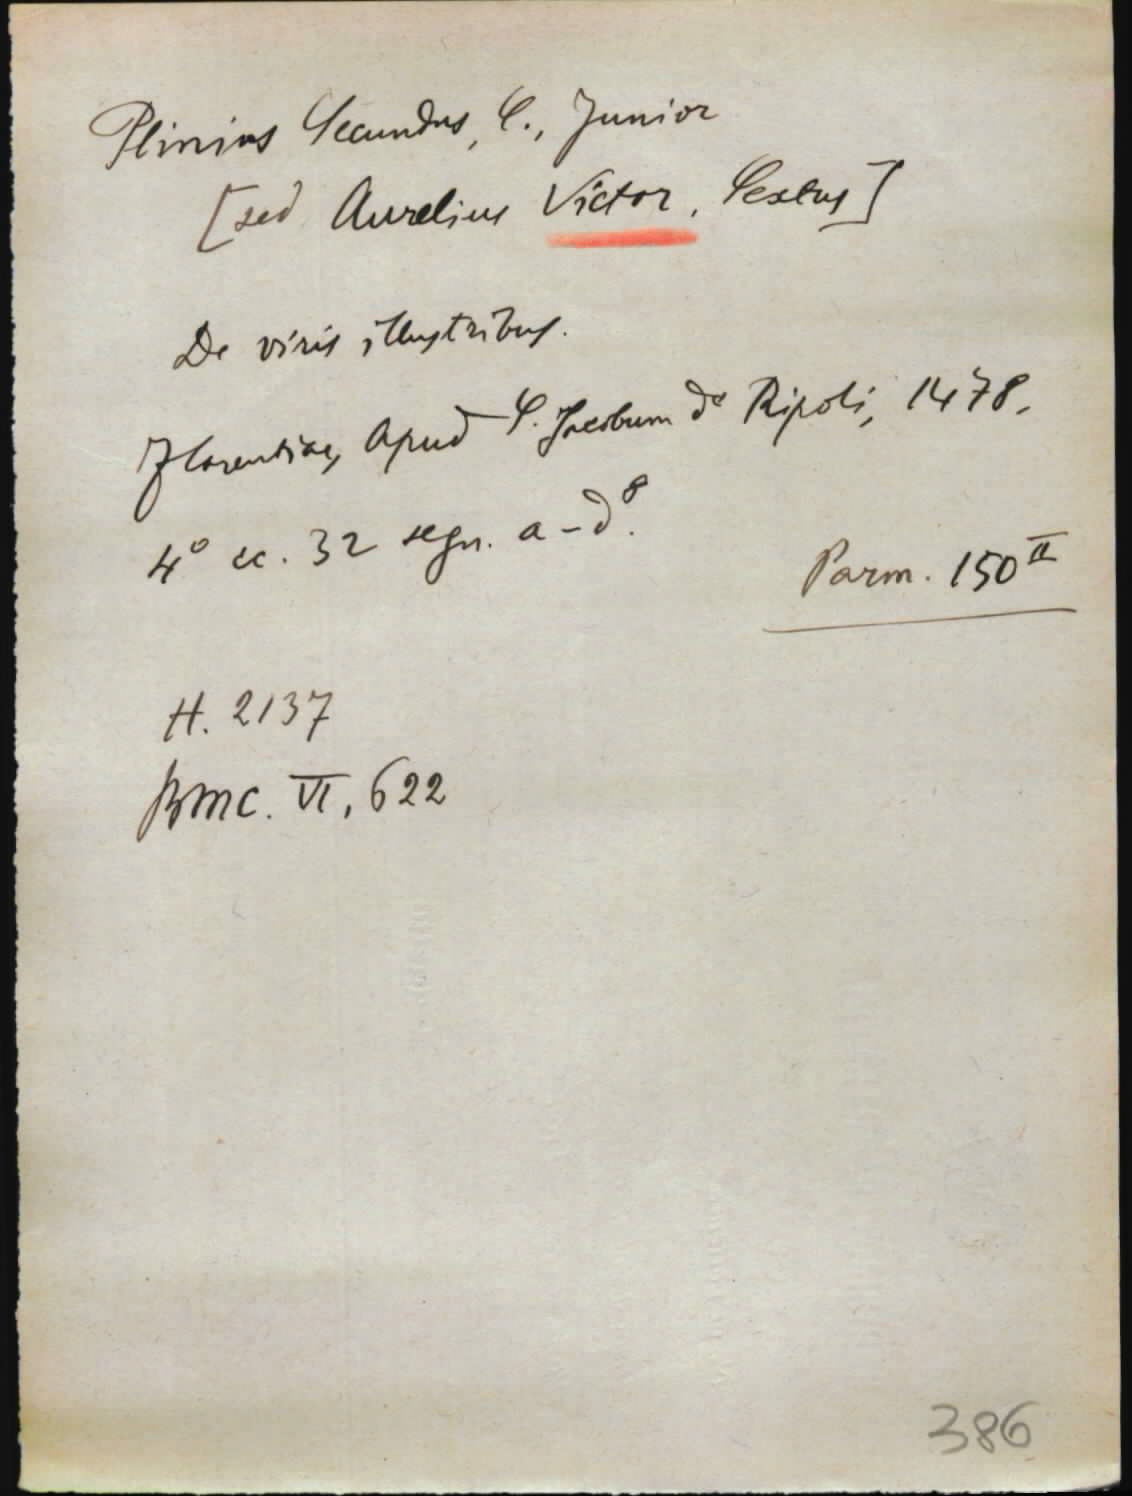 Plinius Secundus, C., Junior
[sed Aurelius Victor, Sextus]
De viris illustribus.
Florentiae, Apud S. Jacobum de Ripoli, 1478.
4° cc. 32 segn. a-d⁸.
Parm. 150 II
H. 2137
BMC. VI, 622
386